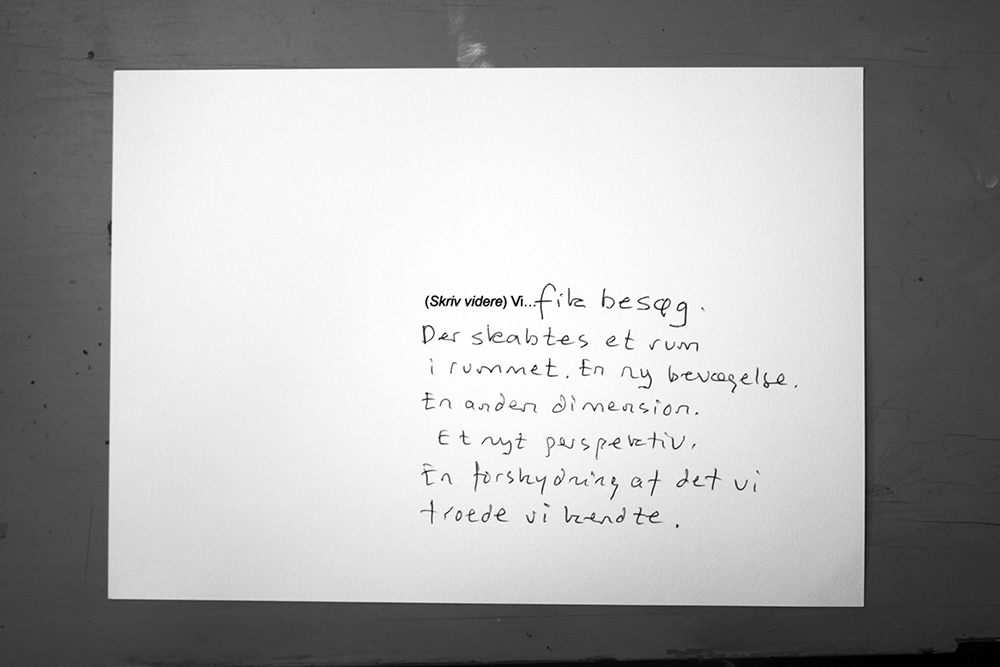 (Skriv videre) Vi... fik besøg.
Der skabtes et rum
i rummet. En ny bevægelse.
En anden dimension.
Et nyt perspektiv.
En forskydning af det vi
troede vi kendte.